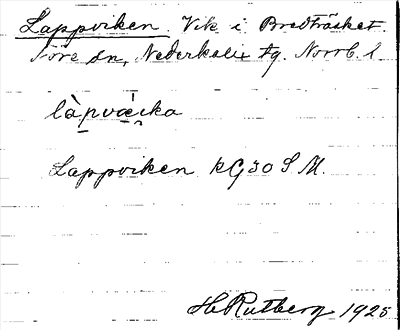 Lappviken. Vik i Bredträsket.
Töre sn, Nederkalix tg. Norrb. l
làpvæ̀ika
Lappviken kG30 S M.
H Rutberg 1925